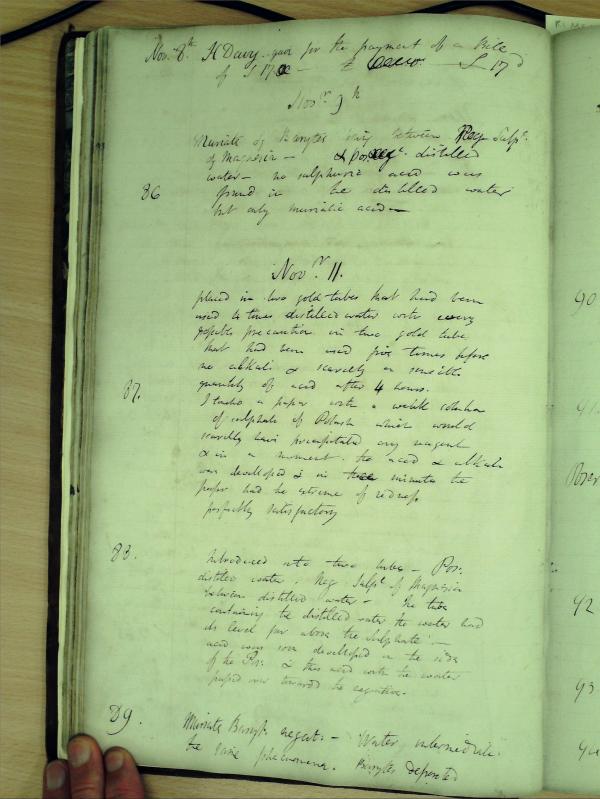 Novr. 8th. H Davy gave for the payment of a Bile
of £ 17 — £ £ 17
Novr. 9th
Muriate of Barytes being between Neg Sulpt.
of Magnesia — & Pos distilled
water — no sulphuric acid was
86
found in the distilled water
but only muriatic acid —
Novr. 11.
placed in two gold tubes that had been
used 4 times distilled water with every
possible precaution in two gold tube
that had been used five times before
no alkali & scarcely a sensible
quantity of acid after 4 hours.
87.
I touched a paper with a weak solution
of sulphate of Potash which would
scarcely have precipitated any reagent
& in a moment the acid & alkali
was developed & in three minutes the
paper had the extreme of redness
perfectly satisfactory
88.
Introduced into two tubes — Pos.
distilled water. Neg. Sulpt. of Magnesia
between distilled water — The tube
containing the distilled water the water had
its level far above the Sulphate —
acid was soon developed in the side
of the Pos. & this acid with the water
passed over towards the negative.
89.
Muriate Baryt. negat. — Water intermediate
the same phenomena. Barytes deposited
90
91
Posi
92
93
94